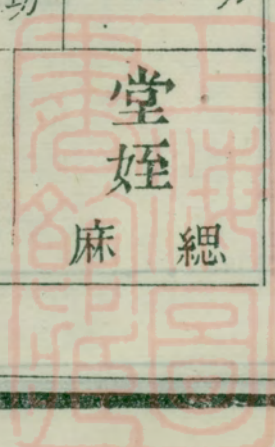 堂姪
緦麻